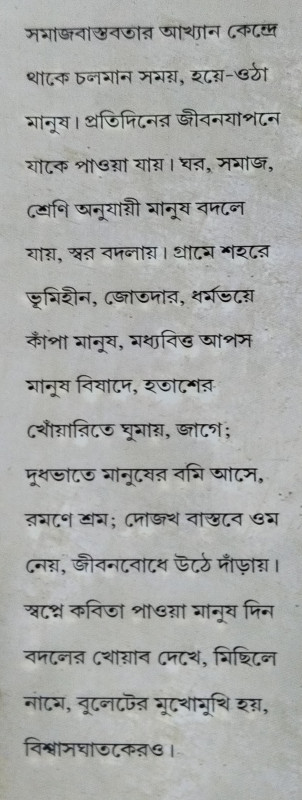 সমাজবাস্তবতার আখ্যান কেন্দ্রে
থাকে চলমান সময়, হয়ে-ওঠা
মানুষ। প্রতিদিনের জীবনযাপনে
যাকে পাওয়া যায়। ঘর, সমাজ,
শ্রেণি অনুযায়ী মানুষ বদলে
যায়, স্বর বদলায়। গ্রামে শহরে
ভূমিহীন, জোতদার, ধর্মভয়ে
কাঁপা মানুষ, মধ্যবিত্ত আপস
মানুষ বিষাদে, হতাশের
খোঁয়ারিতে ঘুমায়, জাগে;
দুধভাতে মানুষের বমি আসে,
রমণে শ্রম; দোজখ বাস্তবে ওম
নেয়, জীবনবোধে উঠে দাঁড়ায়।
স্বপ্নে কবিতা পাওয়া মানুষ দিন
বদলের খোয়াব দেখে, মিছিলে
নামে, বুলেটের মুখোমুখি হয়,
বিশ্বাসঘাতকেরও।